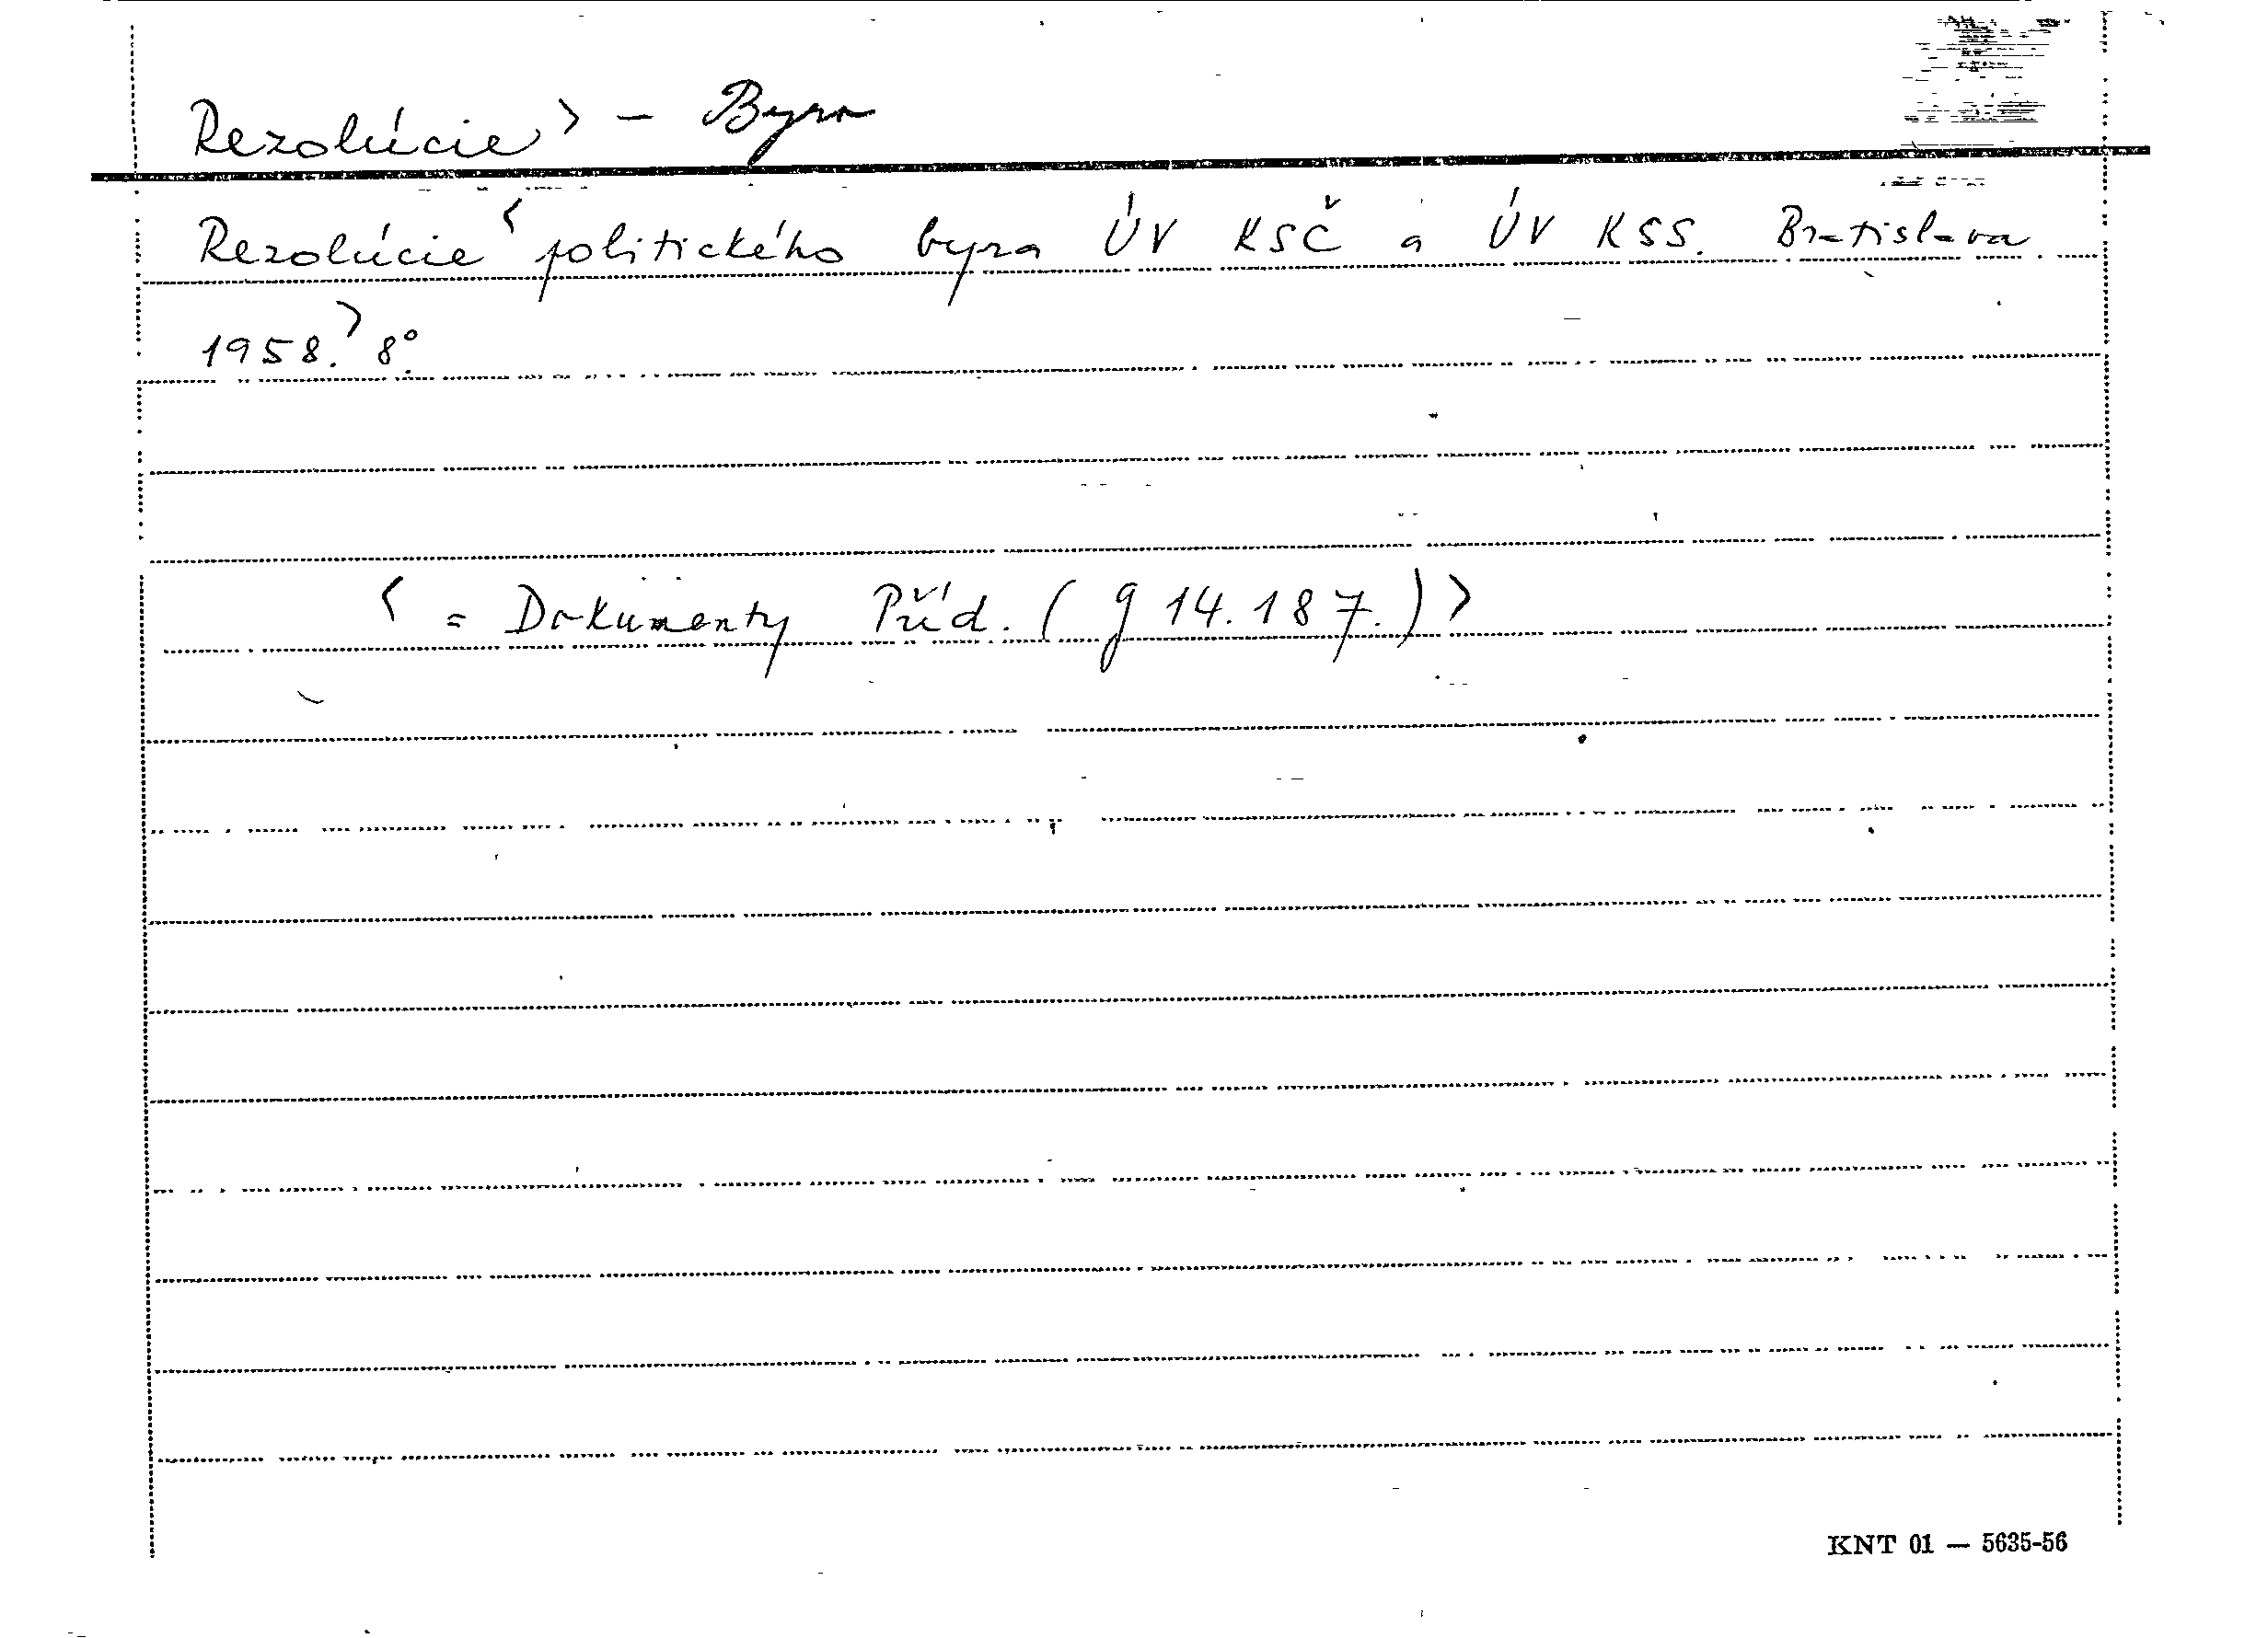 Rezolúcie> - Byro
Rezolúcie < politického byra ÚV KSČ a ÚV KSS. Bratislava
1958.> 8°.
< = Dokumenty Příd. (g 14.187.) >
KNT 01 — 5635-56